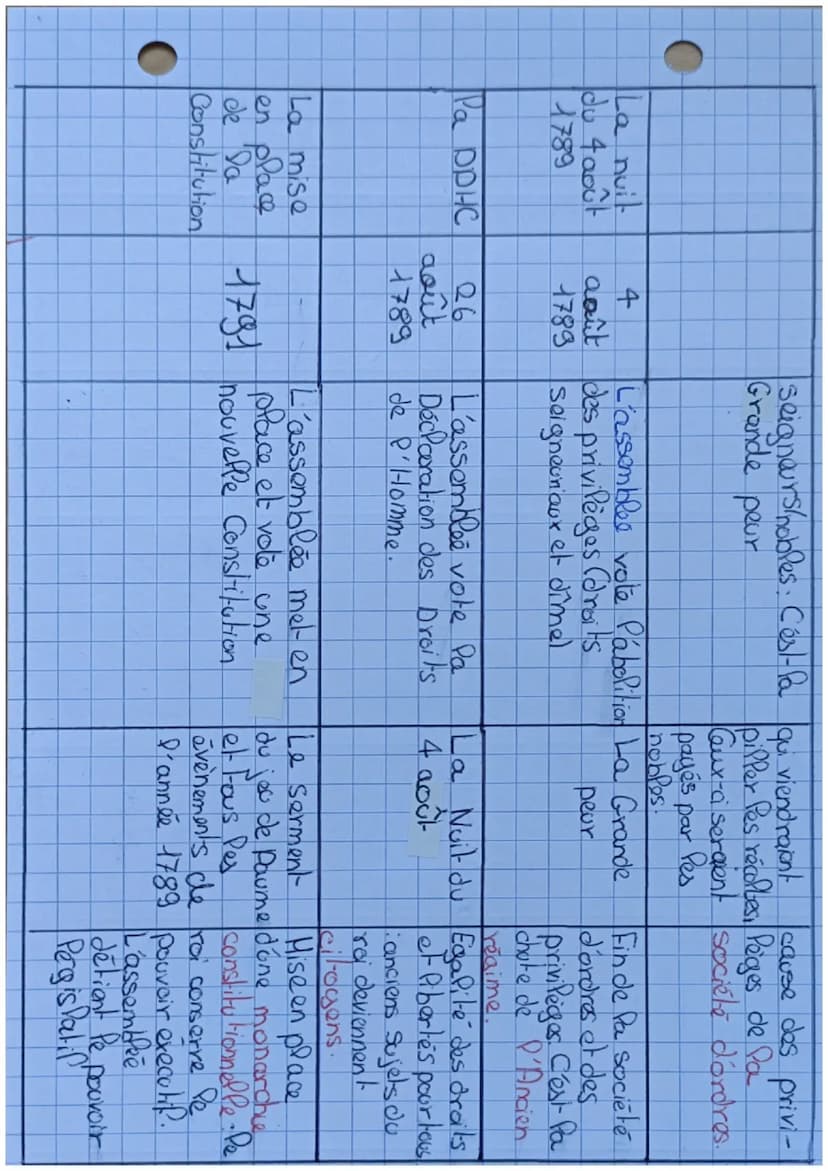 seigneurs/nobles. C'est la
Grande peur
qui viendraient
piller les récoltes,
Ceux-ci seraient
payés par les
nobles.
cause des privi-
lèges de la
société d'ordres.
La nuit
du 4 août
1789
4
août
1789
L'assemblée vote l'abolition
des privilèges (droits
seigneuriaux et dîme)
La Grande
peur
Fin de la société
d'ordres et des
privilèges. C'est la
chute de l'Ancien
régime.
La DDHC
26
août
1789
L'assemblée vote la
Déclaration des Droits
de l'Homme.
La Nuit du
4 août
Egalité des droits
et libertés pour tous
: anciens sujets du
roi deviennent
citoyens.
La mise
en place
de la
Constitution
1791
L'assemblée met en
place et vote une
nouvelle Constitution
Le serment
du jeu de Paume
et tous les
évènements de
l'année 1789
Mise en place
d'une monarchie
constitutionnelle : le
roi conserve le
pouvoir éxecutif.
L'assemblée
détient le pouvoir
législatif